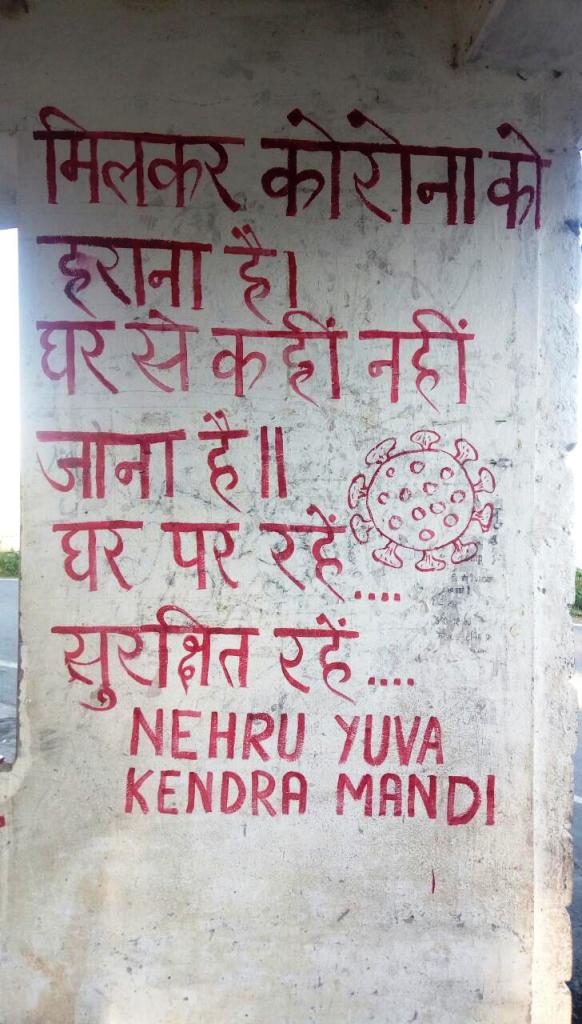 मिलकर कोरोना को
हराना है।
घर से कहीं नहीं
जाना है॥
घर पर रहें....
सुरक्षित रहें....
NEHRU YUVA
KENDRA MANDI